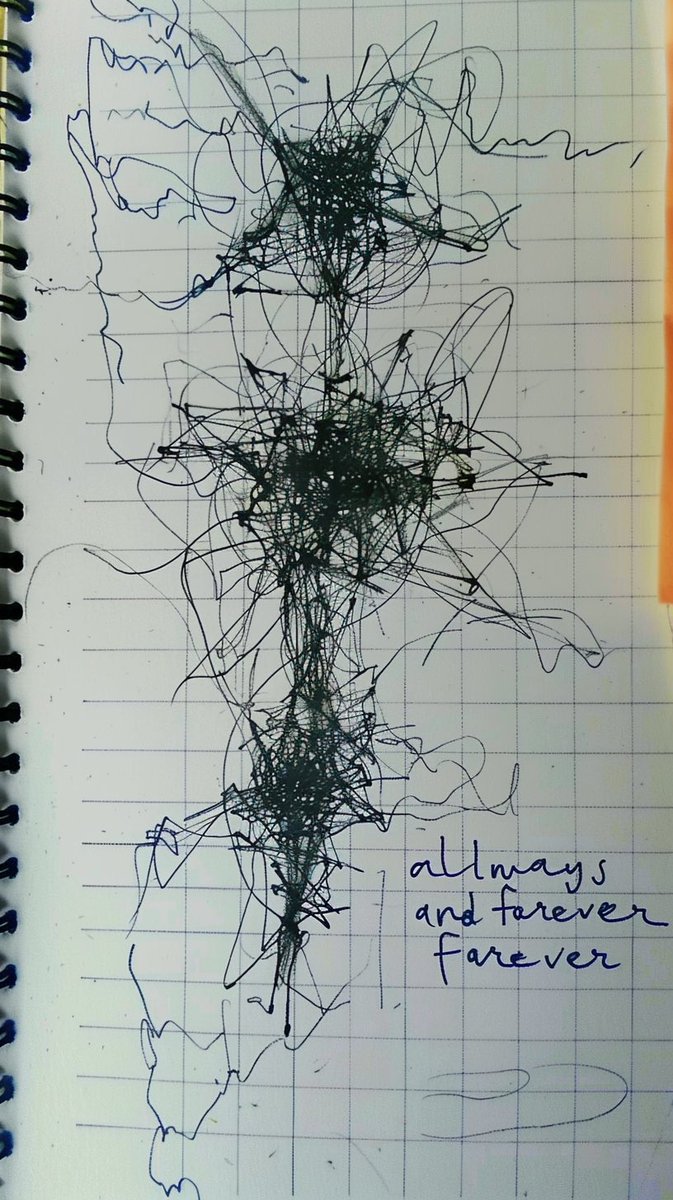 allways
and forever
farever